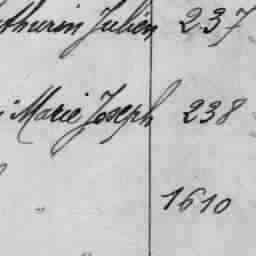 thurin Julien 237
Marie Joseph 238
" 1610